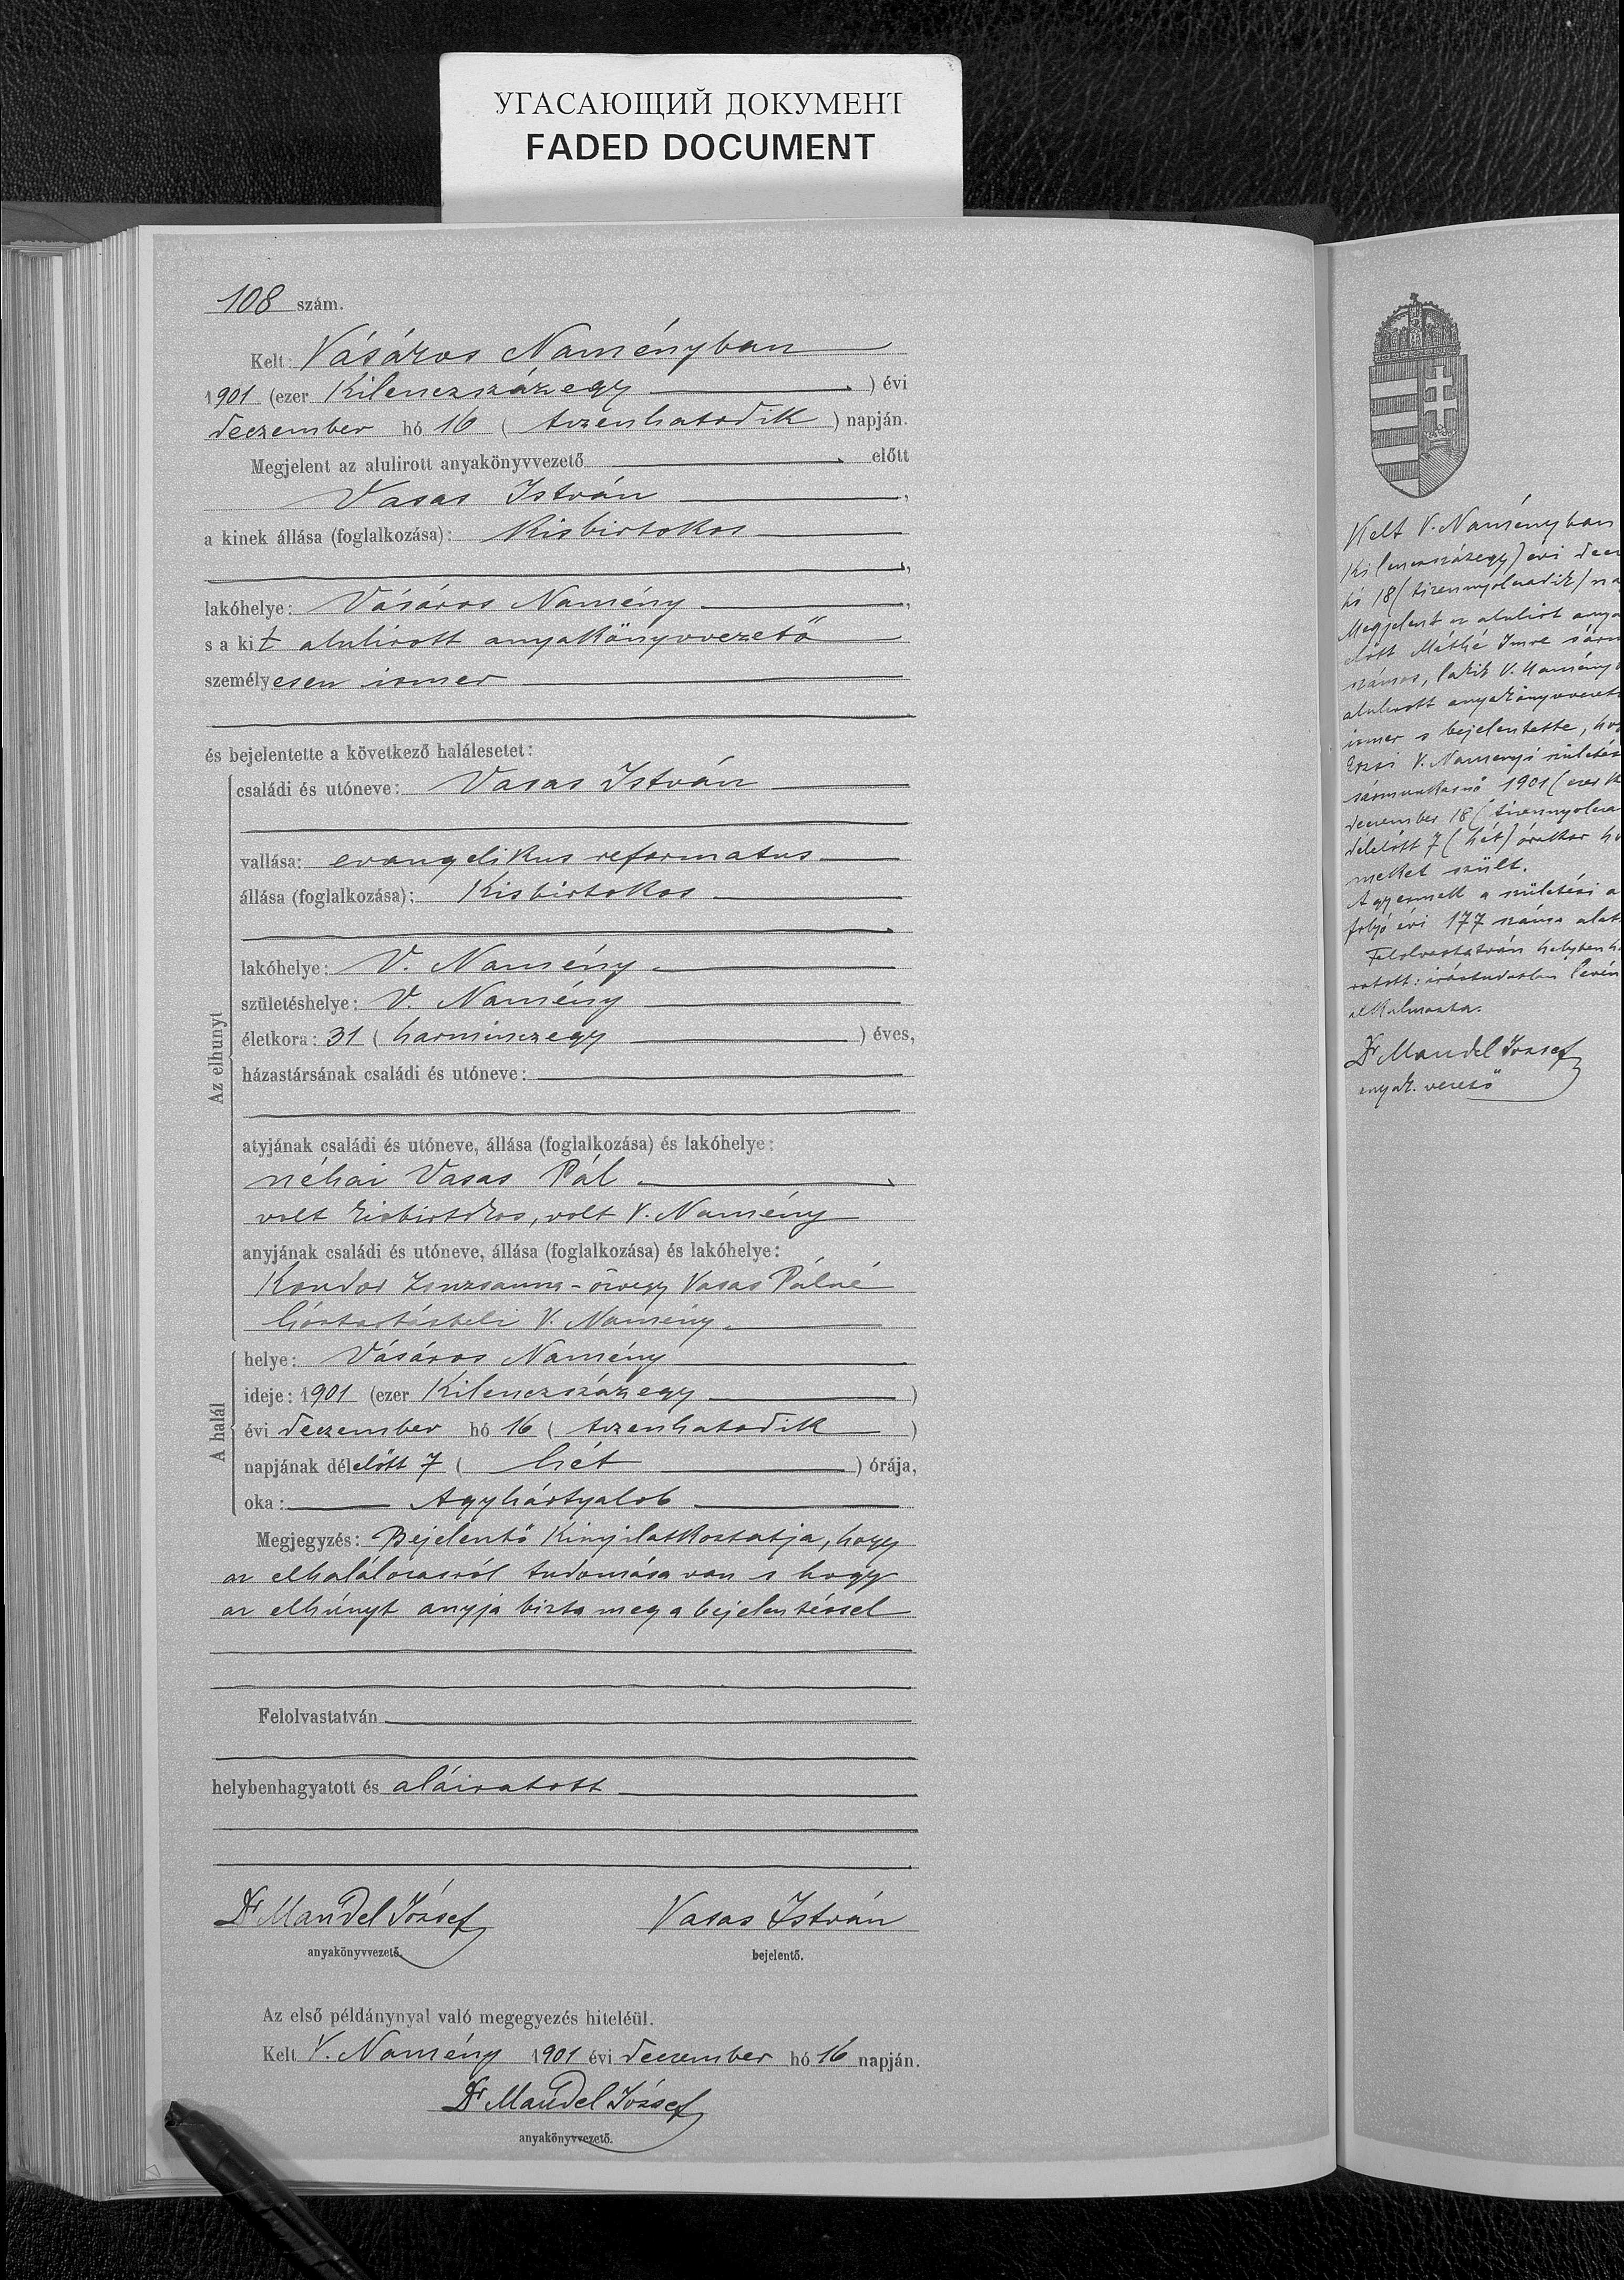 УГАСАЮЩИЙ ДОКУМЕНТ
FADED DOCUMENT
108 szám.
Kelt: Vásáros Naményban
1901 (ezer Kilenczszázegy ) évi
deczember hó 16 ( tizenhatodik ) napján.
Megjelent az alulirott anyakönyvvezető előtt
Vasas István
a kinek állása (foglalkozása): Kisbirtokos
lakóhelye: Vásáros Namény
s a kit alulirott anyakönyvvezető
személyesen ismer
és bejelentette a következő halálesetet:
Az elhunyt
családi és utóneve: Vasas István
vallása: evangelikus reformatus
állása (foglalkozása): Kisbirtokos
lakóhelye: V. Namény
születéshelye: V. Namény
életkora: 31 ( harminczegy ) éves,
házastársának családi és utóneve:
atyjának családi és utóneve, állása (foglalkozása) és lakóhelye:
néhai Vasas Pál
volt kisbirtokos, volt V. Namény
anyjának családi és utóneve, állása (foglalkozása) és lakóhelye:
Kondor Zsuzsanna - özvegy Vasas Pálné
háztartásbeli V. Namény
A halál
helye: Vásáros Namény
ideje: 1901 (ezer Kilenczszázegy )
évi deczember hó 16 ( tizenhatodik )
napjának délelőtt 7 ( hét ) órája,
oka: Agyhártyalob
Megjegyzés: Bejelentő Kinyilatkoztatja, hogy
az elhalálozásról tudomása van s hogy
az elhúnyt anyja bizta meg a bejelentéssel
Felolvastatván
helybenhagyatott és aláiratott
Dr Mandel József Vasas István
anyakönyvvezető. bejelentő.
Az első példánynyal való megegyezés hiteléül.
Kelt V. Namény 1901 évi deczember hó 16 napján.
Dr Mandel József
anyakönyvvezető.
Kelt V. Naményban
Kilenczszázegy) évi
hó 18 (tizennyolczadik)
Megjelent az alulirt
előtt Máthé Imre
számos, lakik V. Namény
alulirott anyakönyvvezető
ismer s bejelentette,
V. Naményi születésű
1901 (ezer
deczember 18 (tizennyolcza
délelőtt 7 (hét) órakor
meket szült.
A gyermek a születési a
folyó évi 177 száma alat
Felolvastatván helyben h
Dr Mandel József
anyak. vezető